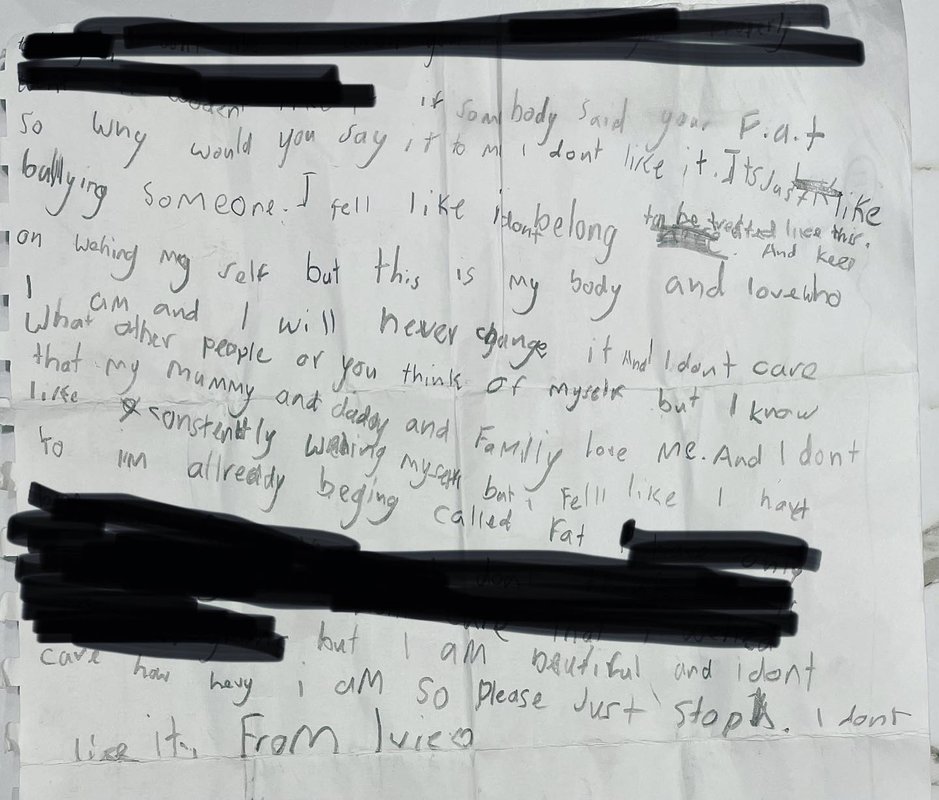 if som body said your F.a.t
so why would you say it to m I dont like it. Its Just like
bullying someone. I fell like i dont belong to be treated like this. And keep
on wehing my self but this is my body and love who
I am and I will never change it And I dont care
What other people or you think of myself but I know
that my mummy and daddy and Familly love me. And I dont
like constently wehing myself but i Fell like I have
to I'M allready beging called Fat
but I AM beutiful and i dont
care how hevy i AM so please Just stop. I dont
like it. From Ivie